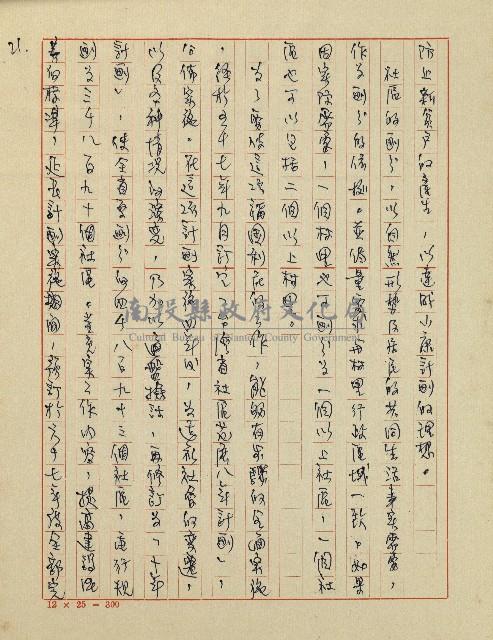 21.
防止新貧戶的產生,以達成小康計劃的理想。
社區的劃分,以自然形勢及居民的共同生活事實需要,
作為劃分的依據。並儘量求與村里行政區域一致。如果
因實際需要,一個村里也可劃分為一個以上社區,一個社
區也可以包括二個以上村里。
為了要使這項福國利民的工作,能夠有系統的全面實施
,經於五十七年九月訂定了「台灣省社區發展八年計劃」,
公佈實施。在這項計劃實施四年後,為適應社會的變遷,
以及各種情況的演變,乃加以通盤檢討,再修訂為「十年
計劃」,使全省原劃分的四千八百九十三個社區,重行規
劃為三千八百九十個社區。並充實工作內容,提高建設
的標準,延長計劃實施期間,預訂於六十七年度全部完
南投縣政府文化局
Cultural Bureau of Nantou County Government
12 × 25 = 300